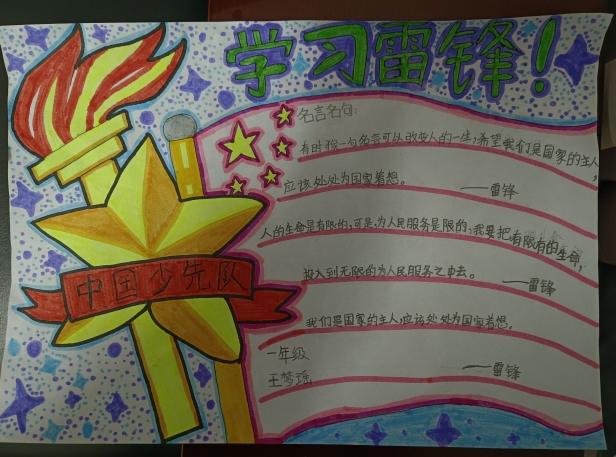 学习雷锋!
名言名句:
有时候一句名言可以改变人的一生;希望我们是国家的主人,
应该处处为国家着想。 ——雷锋
人的生命是有限的,可是,为人民服务是限的;我要把有限有的生命,
投入到无限的为人民服务之中去。 ——雷锋
我们是国家的主人,应该处处为国家着想。
一年级
——雷锋
王梦瑶
中国少先队